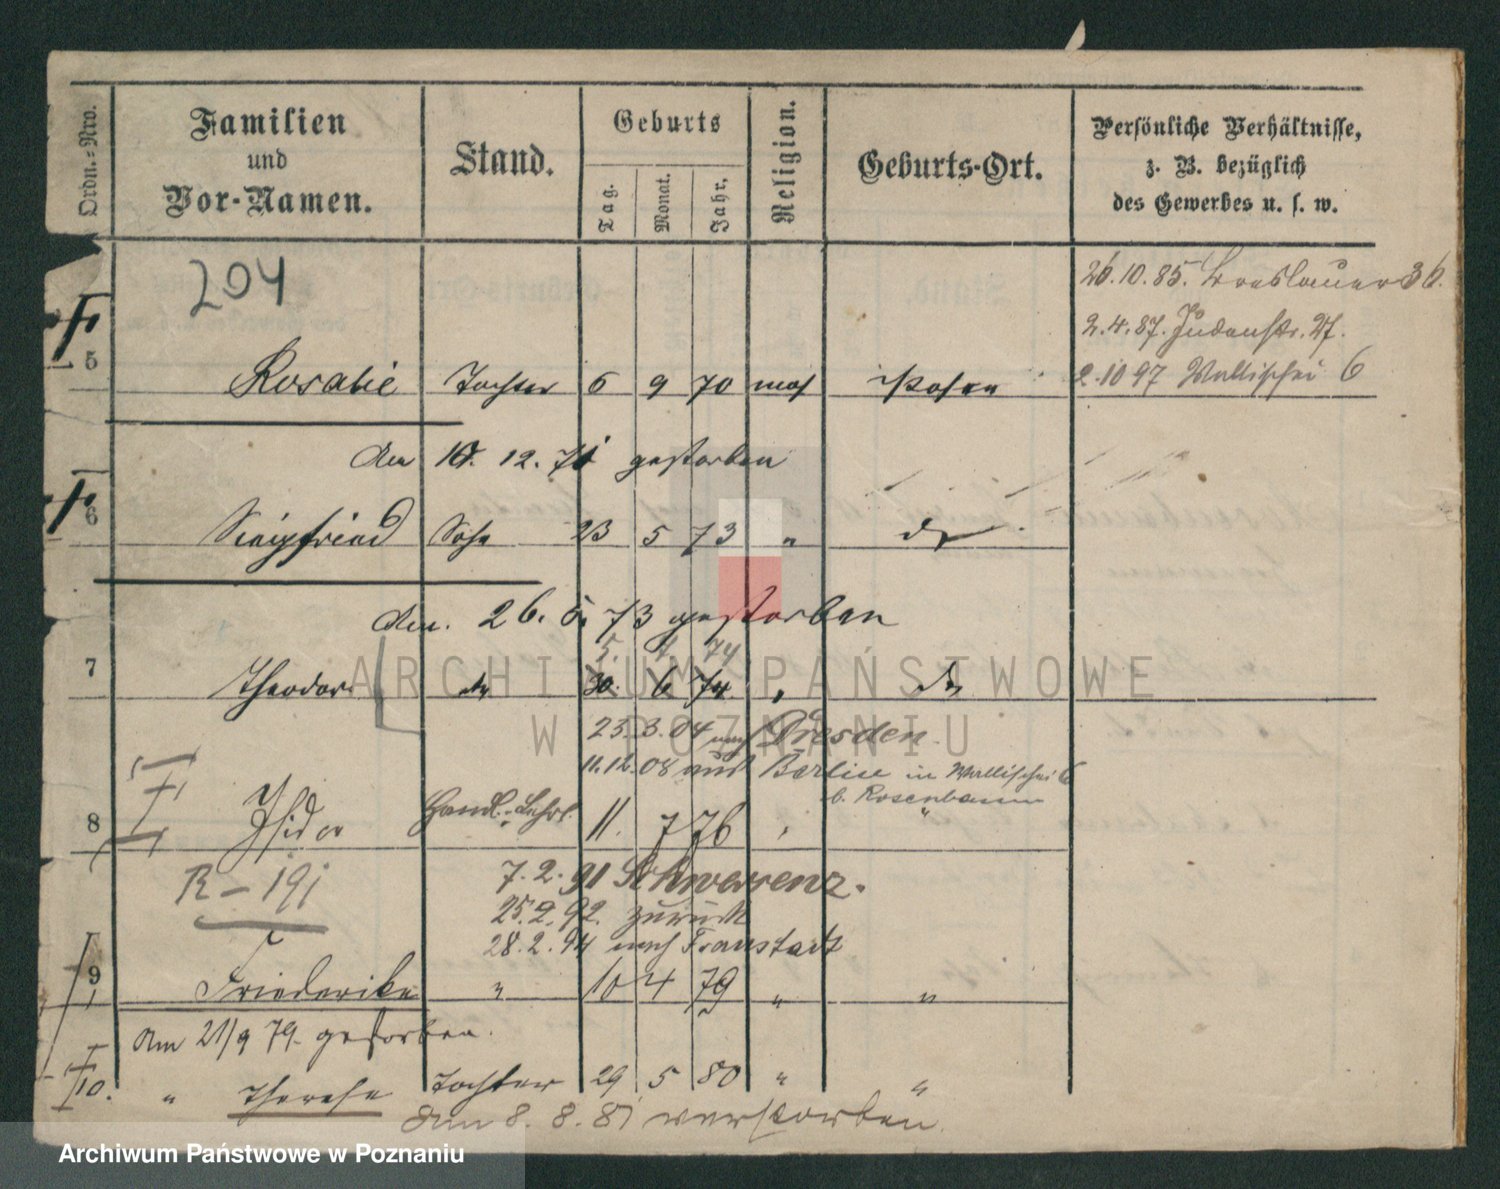 Ordn.=Nro.
Familien
und
Vor-Namen.
Stand.
Geburts
Tag.
Monat.
Jahr,
Religion.
Geburts-Ort.
Persönliche Verhältnisse,
z. B. bezüglich
des Gewerbes u. s. w.
204
26.10.85. Breslauer 36.
2.4.87. Judenstr. 27.
2.10 97 Wallischei 6
5 Rosalie Tochter 6 9 70 mos Posen
den 12. 71 gestorben
6 Siegfried Sohn 23 5 73 "
den. 26. 5. 73 gestorben
5. 74
7 Theodor 30. 6 74. "
23.3.04 nach Dresden.
11.12.08 aus Berlin in Wallischei 6
b. Rosenbaum
8 Isidor Handl.-Lehrl. 11. 7 76 " "
R - 191
7.2.91 Schwersenz.
25.2.92. zurück
28.2.94 nach Fraustadt
9 Friederike " 10 4 79 " "
Am 21/9 79. gestorben.
10. " Therese Tochter 29 5 80 " "
den 8. 8. 81 verstorben.
ARCHIWUM PAŃSTWOWE
W POZNANIU
Archiwum Państwowe w Poznaniu